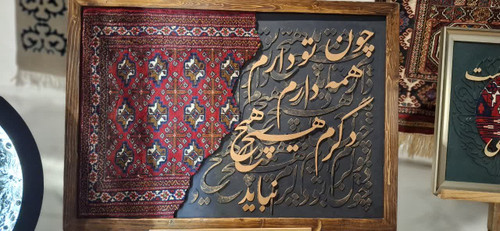 چون تو دارم
همه دارم
دگرم هیچ هیچ
نباید